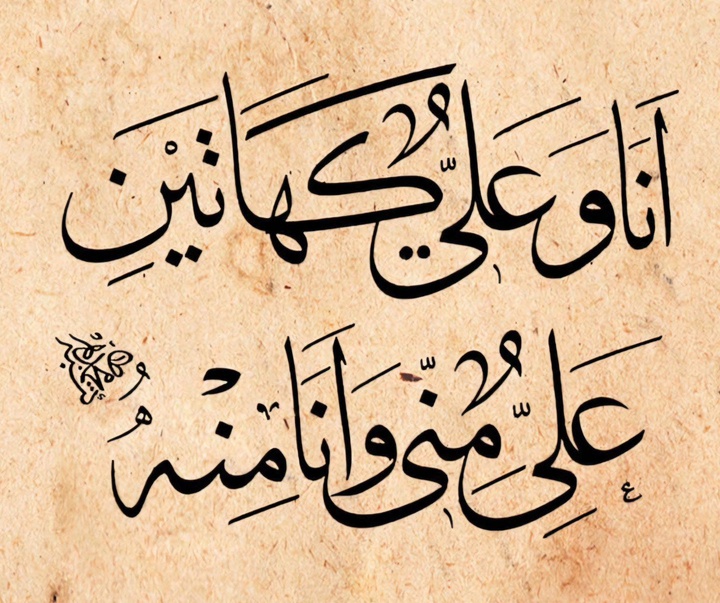 اَنَا وَ عَلِيٌّ كَهَاتَيْنِ
عَلِيٌّ مِنّى وَاَنَا مِنْهُ